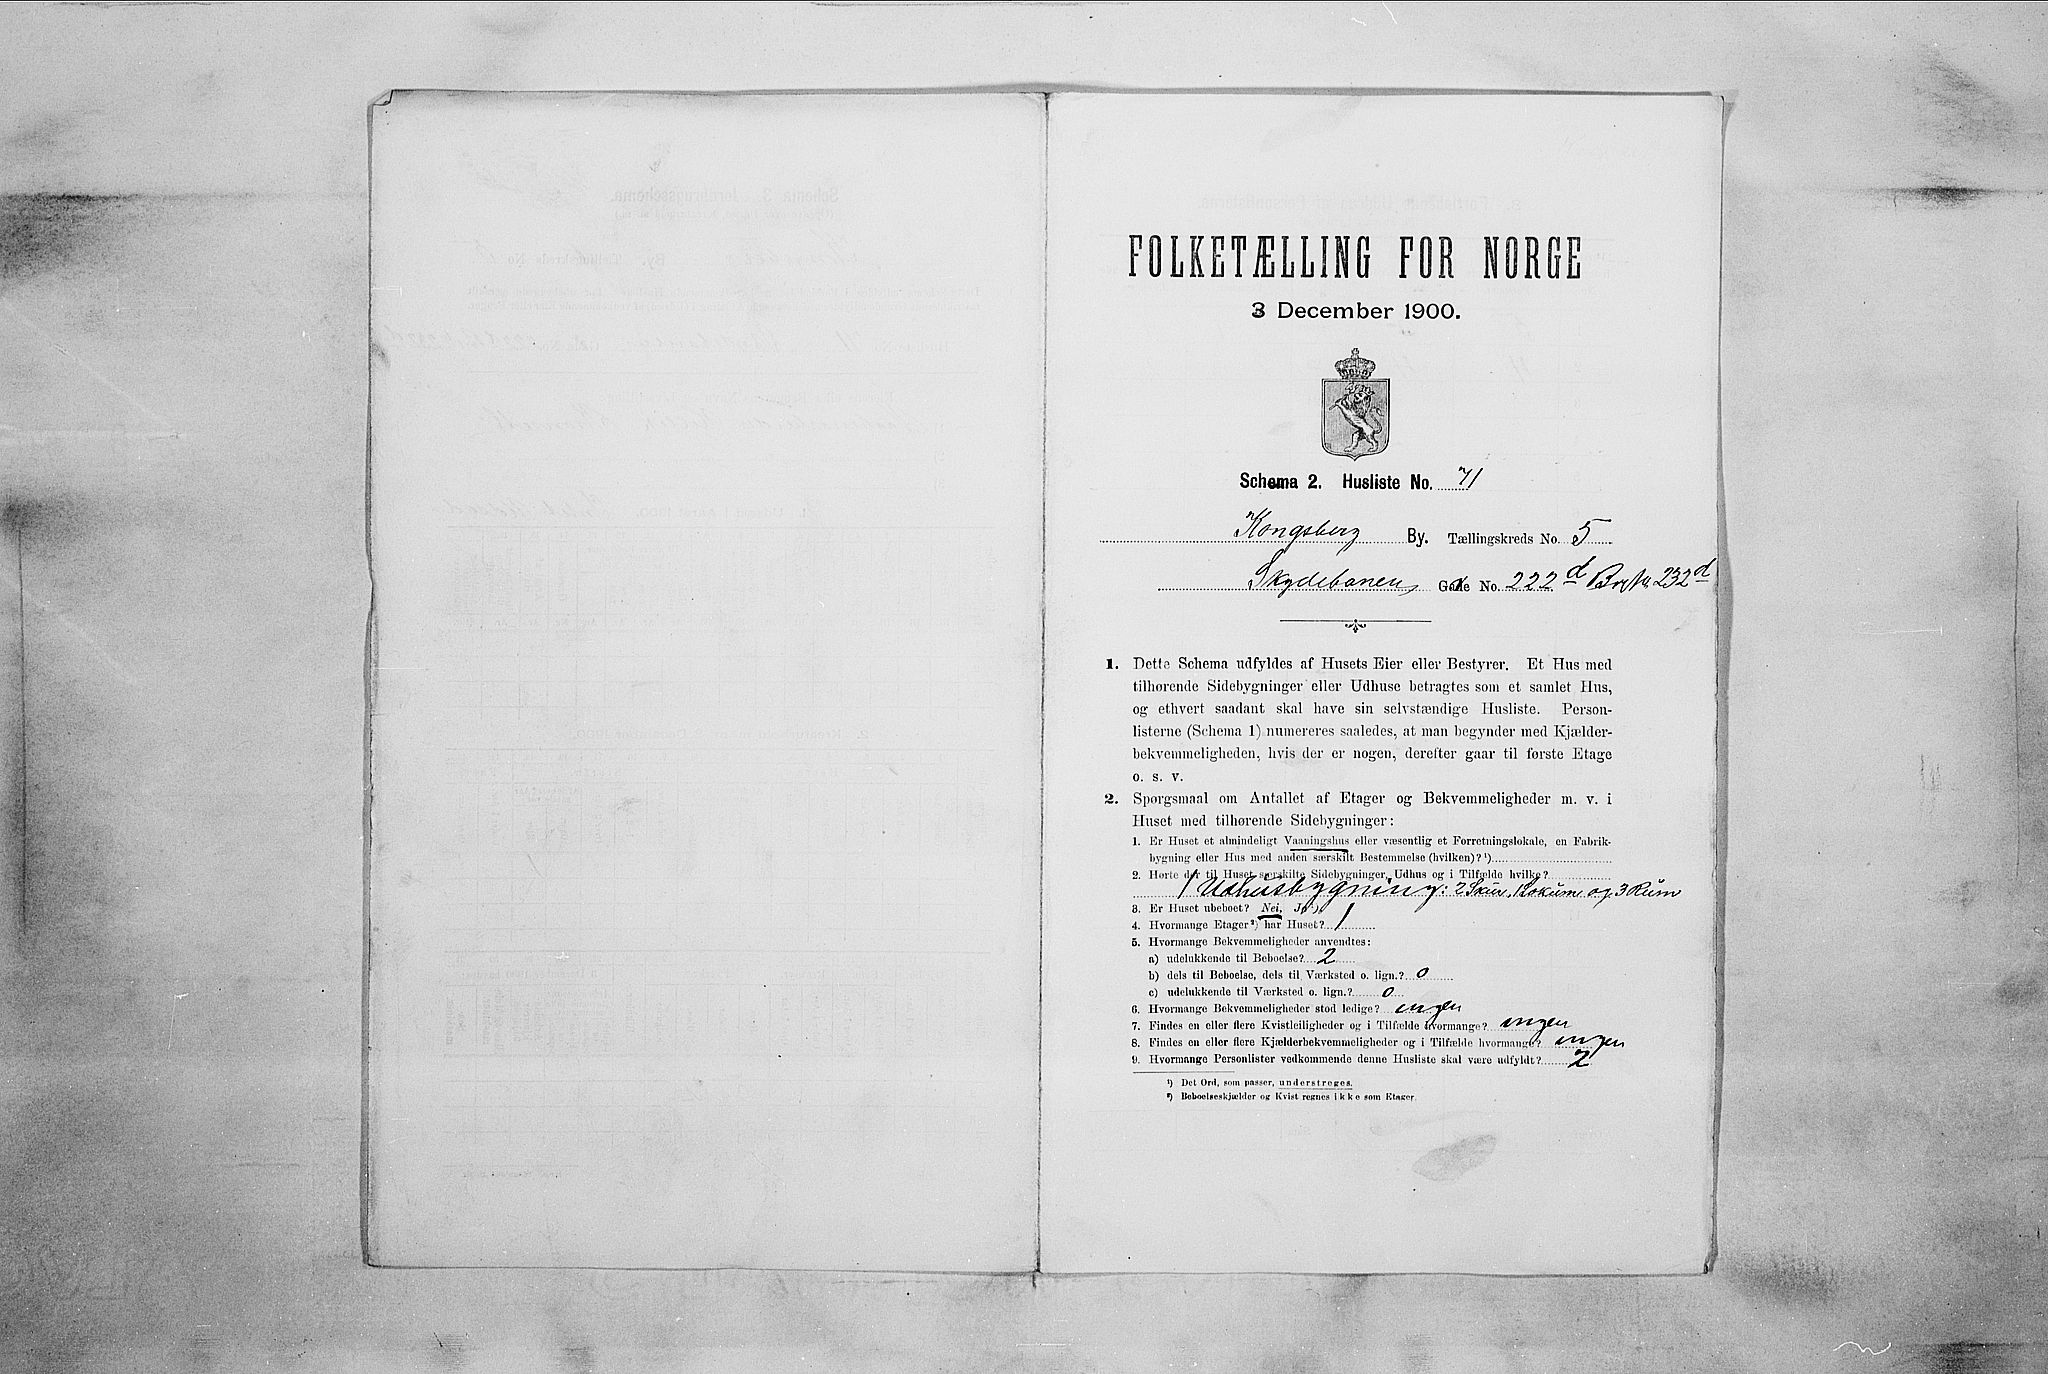 FOLKETÆLLING FOR NORGE
3 December 1900.
Schema 2. Husliste No. 71
Kongsberg By. Tællingskreds No. 5
Skydebanen Gade No. 222 d 232 d
1. Dette Schema udfyldes af Husets Eier eller Bestyrer. Et Hus med
tilhørende Sidebygninger eller Udhuse betragtes som et samlet Hus,
og ethvert saadant skal have sin selvstændige Husliste. Person-
listerne (Schema 1) numereres saaledes, at man begynder med Kjælder-
bekvemmeligheden, hvis der er nogen, derefter gaar til første Etage
o. s. v.
2. Spørgsmaal om Antallet af Etager og Bekvemmeligheder m. v. i
Huset med tilhørende Sidebygninger:
1. Er Huset et almindeligt Vaaningshus eller væsentlig et Forretningslokale, en Fabrik-
bygning eller Hus med anden særskilt Bestemmelse (hvilken)? ¹)
2. Hørte der til Huset særskilte Sidebygninger, Udhus og i Tilfælde hvilke?
1 Udhusbygning: 2 Skur, 1 og 3 Rum
3. Er Huset ubeboet? Nei, Ja ¹).
4. Hvormange Etager ²) har Huset? 1
5. Hvormange Bekvemmeligheder anvendtes:
a) udelukkende til Beboelse? 2
b) dels til Beboelse, dels til Værksted o. lign.? 0
c) udelukkende til Værksted o. lign.? 0
6. Hvormange Bekvemmeligheder stod ledige? ingen
7. Findes en eller flere Kvistleiligheder og i Tilfælde hvormange? ingen
8. Findes en eller flere Kjælderbekvemmeligheder og i Tilfælde hvormange? ingen
9. Hvormange Personlister vedkommende denne Husliste skal være udfyldt? 2
¹) Det Ord, som passer, understreges.
²) Beboelseskjælder og Kvist regnes ikke som Etager.